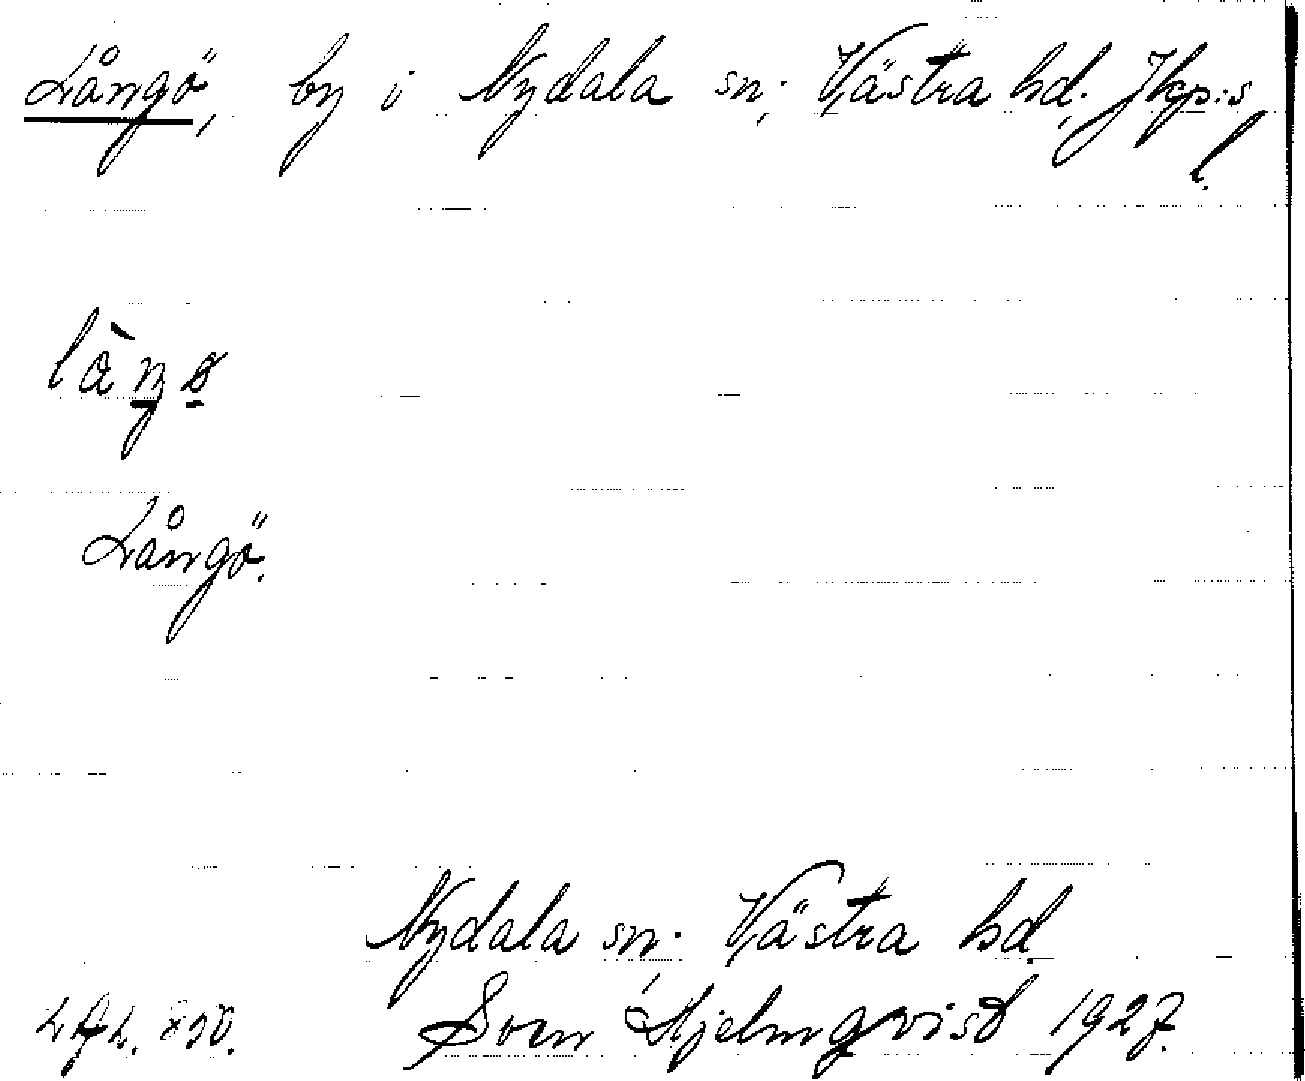 Långö, by i Nydala sn, Västra hd, Jkp:s
l.
Långö.
Nydala sn, Västra hd
Sven Hjelmqvist 1927.